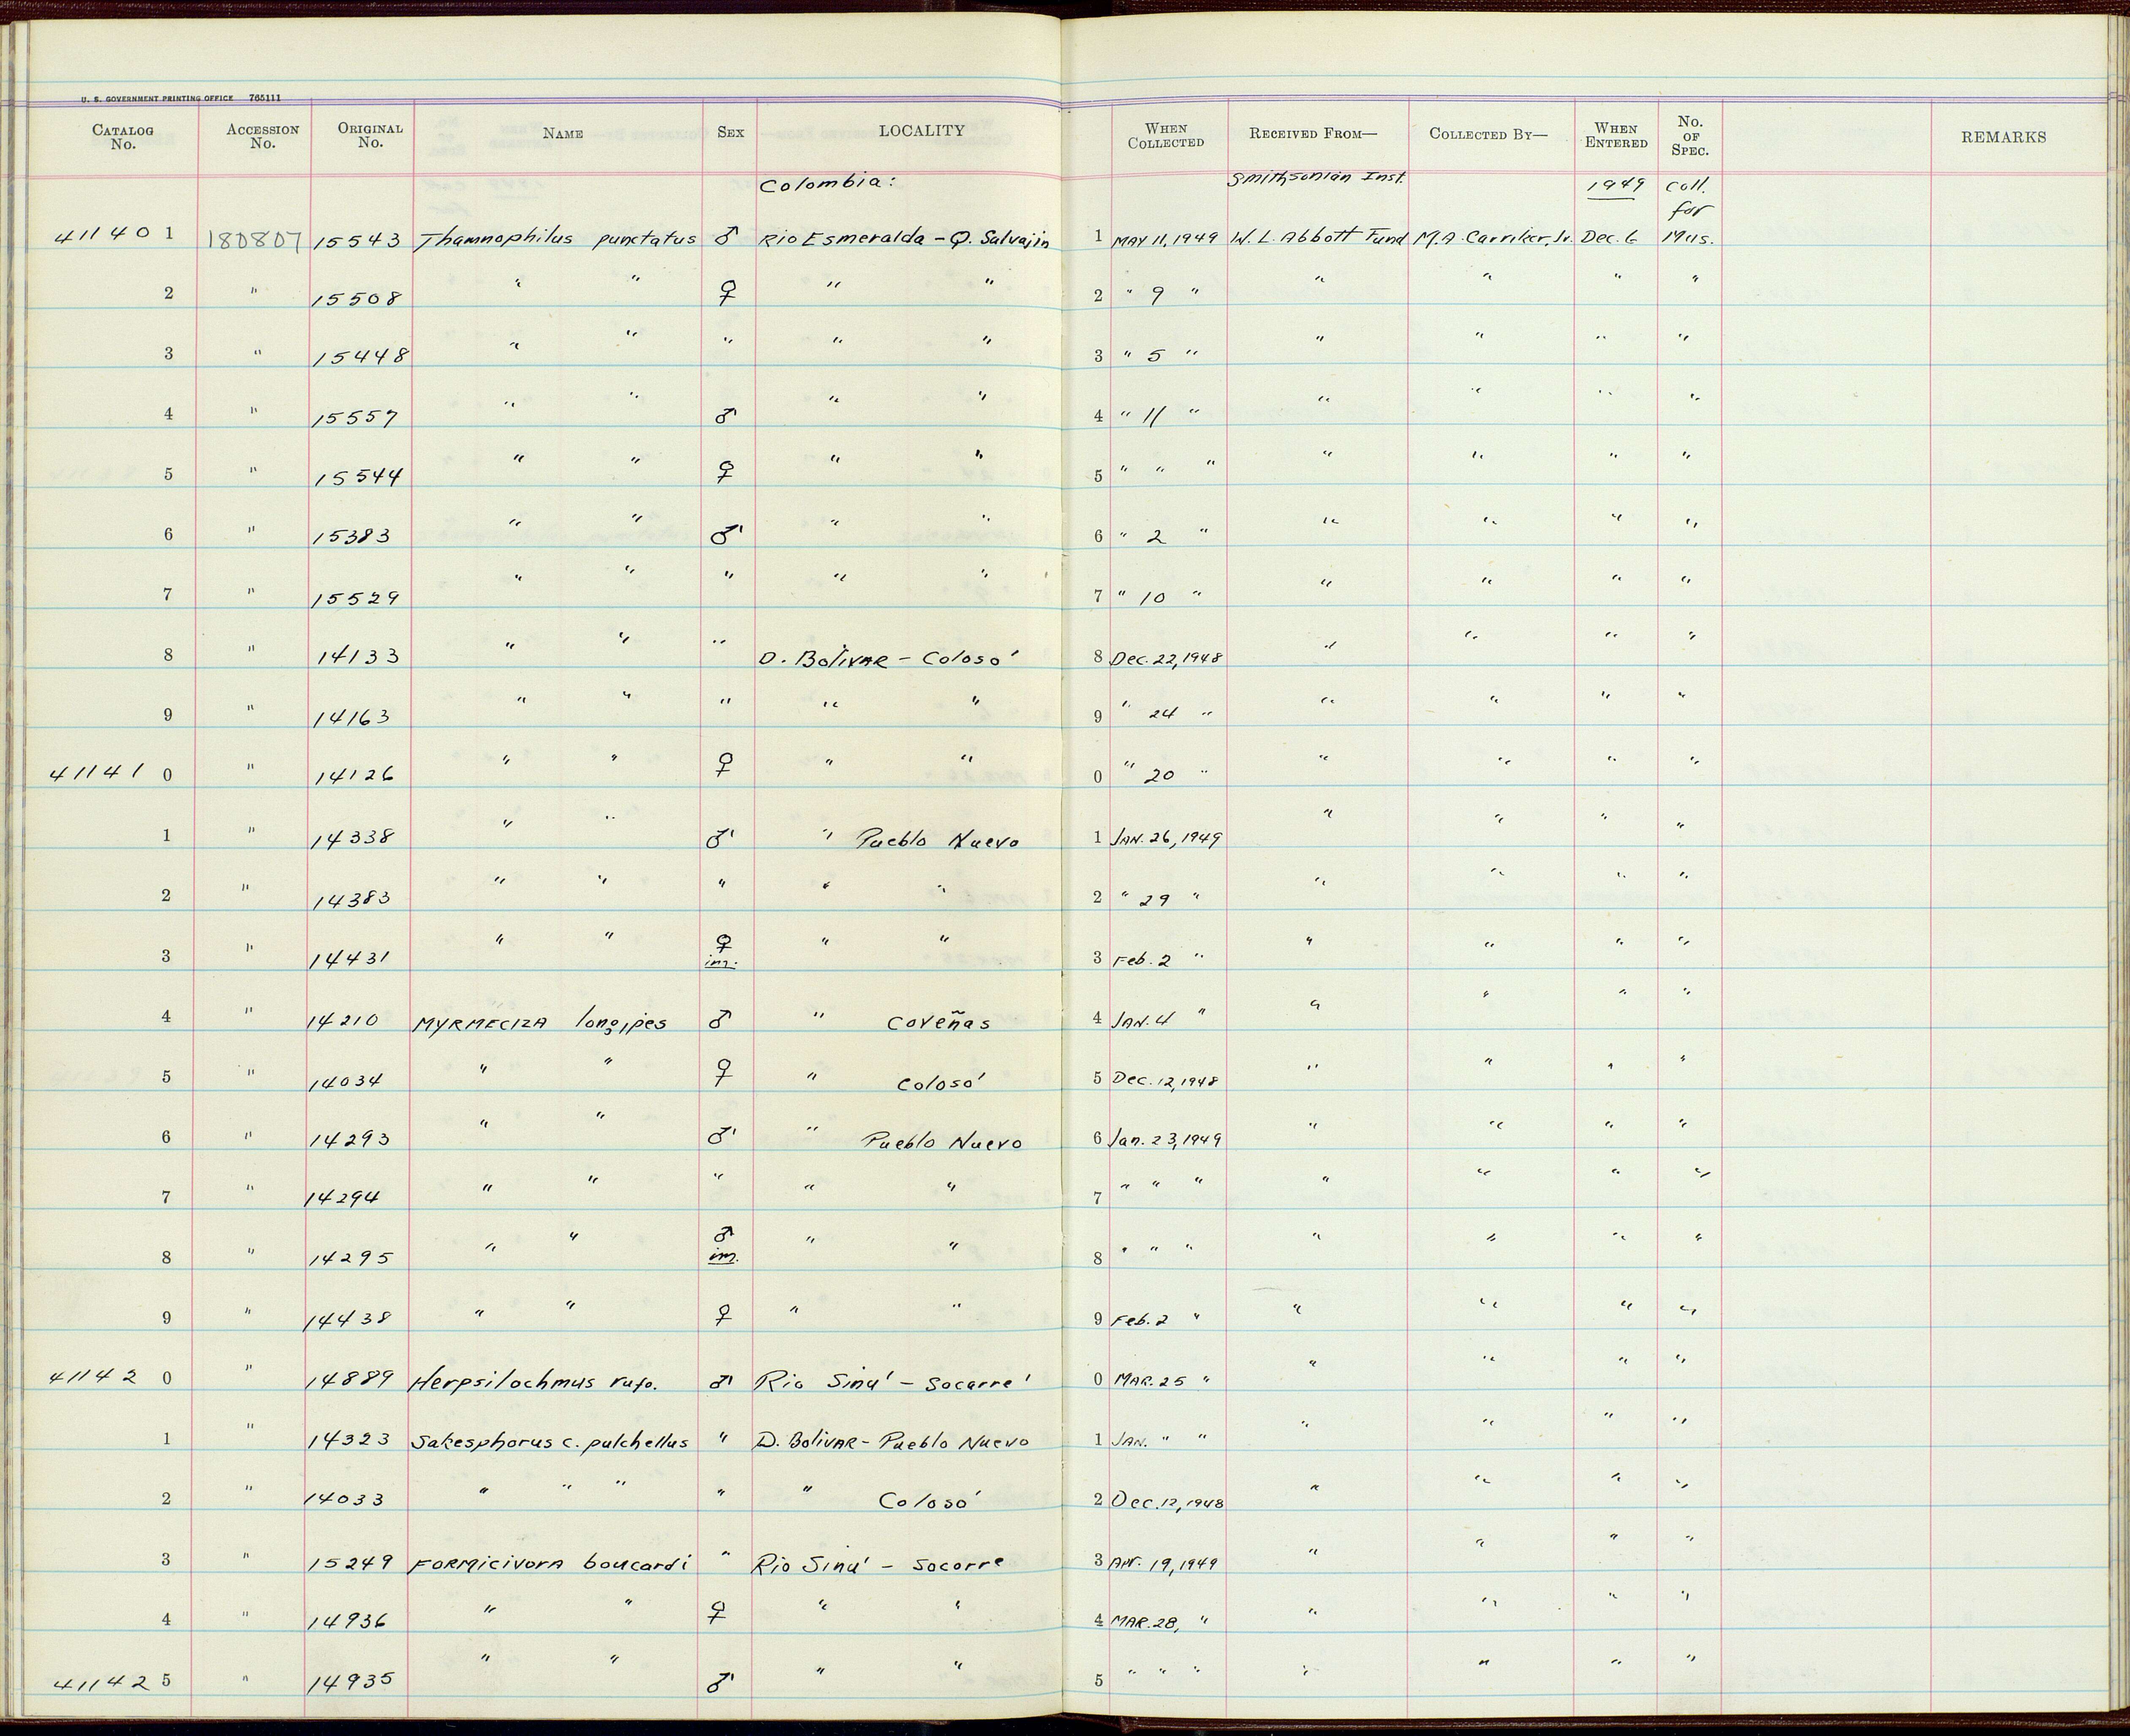 U. S. GOVERNMENT PRINTING OFFICE 765111
CATALOG No. ACCESSION No. ORIGINAL No. NAME SEX LOCALITY WHEN COLLECTED RECEIVED FROM— COLLECTED BY— WHEN ENTERED No. OF SPEC. REMARKS
Colombia: Smithsonian Inst. 1949 Coll. for
411401 180807 15543 Thamnophilus punctatus ♂ Rio Esmeralda - Q. Salvajin 1 MAY 11, 1949 W. L. Abbott Fund M.A. Carriker, Jr. Dec. 6 Mus.
2 " 15508 " " ♀ " " 2 " 9 " " " " "
3 " 15448 " " " " " 3 " 5 " " " " "
4 " 15557 " " ♂ " " 4 " 11 " " " " "
5 " 15544 " " ♀ " " 5 " " " " " " "
6 " 15383 " " ♂ " " 6 " 2 " " " " "
7 " 15529 " " " " " 7 " 10 " " " " "
8 " 14133 " " " D. Bolivar - Colosó 8 Dec. 22, 1948 " " " "
9 " 14163 " " " " " 9 " 24 " " " " "
411410 " 14126 " " ♀ " " 0 " 20 " " " " "
1 " 14338 " " ♂ " Pueblo Nuevo 1 JAN. 26, 1949 " " " "
2 " 14383 " " " " " 2 " 29 " " " " "
3 " 14431 " " ♀ im. " " 3 Feb. 2 " " " " "
4 " 14210 MYRMECIZA longipes ♂ " Coveñas 4 JAN. 4 " " " " "
5 " 14034 " " ♀ " Colosó 5 Dec. 12, 1948 " " " "
6 " 14293 " " ♂ " Pueblo Nuevo 6 Jan. 23, 1949 " " " "
7 " 14294 " " " " " 7 " " " " " " "
8 " 14295 " " ♂ im. " " 8 " " " " " " "
9 " 14438 " " ♀ " " 9 Feb. 2 " " " " "
411420 " 14889 Herpsilochmus rufo. ♂ Rio Sinú - Socarré 0 MAR. 25 " " " " "
1 " 14323 Sakesphorus c. pulchellus " D. Bolivar - Pueblo Nuevo 1 JAN. " " " " " "
2 " 14033 " " " " " Colosó 2 Dec. 12, 1948 " " " "
3 " 15249 FORMICIVORA boucardi " Rio Sinú - Socorre 3 Apr. 19, 1949 " " " "
4 " 14936 " " ♀ " " 4 MAR. 28, " " " " "
411425 " 14935 " " ♂ " " 5 " " " " " " "